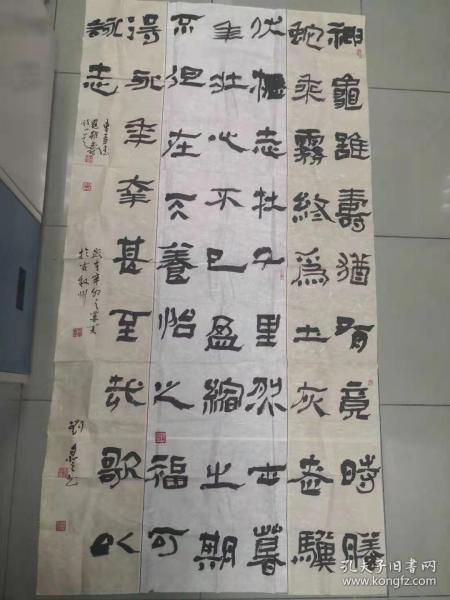 神龜雖壽猶有竟時騰
蛇乘霧終爲土灰老驥
伏櫪志在千里烈士暮
年壯心不已盈縮之期
不但在天養怡之福可
得永年幸甚至哉歌以
詠志
曹孟德
龜雖壽
歲在辛卯之夏
於古敘州
劉
孔夫子旧书网
www.kongfz.com